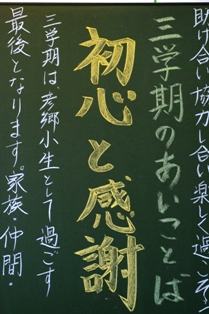 助け合い協力し合い楽しく過ごそう
三学期のあいことば
初心と感謝
三学期は、彦郷小生として過ごす
最後となります。家族・仲間・